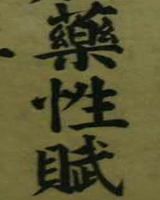 藥性賦